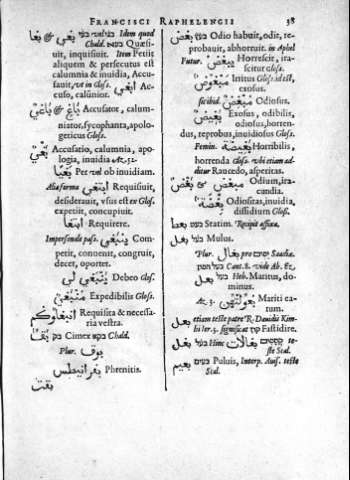 FRANCISCI RAPHELENGII 38
بغى بغا Idem quod
Chald. Quæsi-
uit, inquisiuit. Item Petiit
aliquem & persecutus est
calumnia & inuidia, Accu-
sauit, vt in Gloss. ابغى Ac-
cuso, calũnior.
باغي & باغ Accusator, calum-
niator, sycophanta, apolo-
geticus Gloss.
بغي Accusatio, calumnia, apo-
logia, inuidia Act. 52.
بغيا Per vel ob inuidiam.
Alia forma ابتغى Requisiuit,
desiderauit, vsus est ex Gloss.
expetiit, concupiuit.
ابتغا Requirere.
Impersonale pass. ينبغي Com-
petit, conuenit, congruit,
decet, oportet.
ينبغي لي Debeo Gloss.
منبغي Expedibilis Gloss.
Requisita & necessa-
ria vestra.
بق Cimex בק Chald.
Plur. بوق
Phrenitis.
بقت
بغض Odio habuit, odit, re-
probauit, abhorruit. in Aphel
Futur. يبغض Horrescit, ira-
scitur Gloss.
مبغوض Iritus Gloss. id est,
exosus.
scribid. مبغض Odiosus.
بغيض Exosus, odibilis,
odiosus, horren-
dus, reprobus, inuidiosus Gloss.
Femin. بغيضة Horribilis,
horrenda Gloss. vbi etiam ad-
ditur Raucedo, asperitas.
مبغض & بغض Odium, ira-
cundia.
بغضة Odiositas, inuidia,
dissidium Gloss.
Statim. Recipit affixa.
بغل Mulus.
Plur. pro
Cant. 8. vide Ab. &c.
بعل Heb. Maritus, do-
minus.
Act. 3. بعولتهن Mariti ea-
rum.
بعل etiam teste patre R. Dauidis Kim-
hi Ier. 3. significat קוץ Fastidire.
بغالات Hinc te-
ste Scal.
بعيم Puluis, Interp. Auis. teste
Scal.